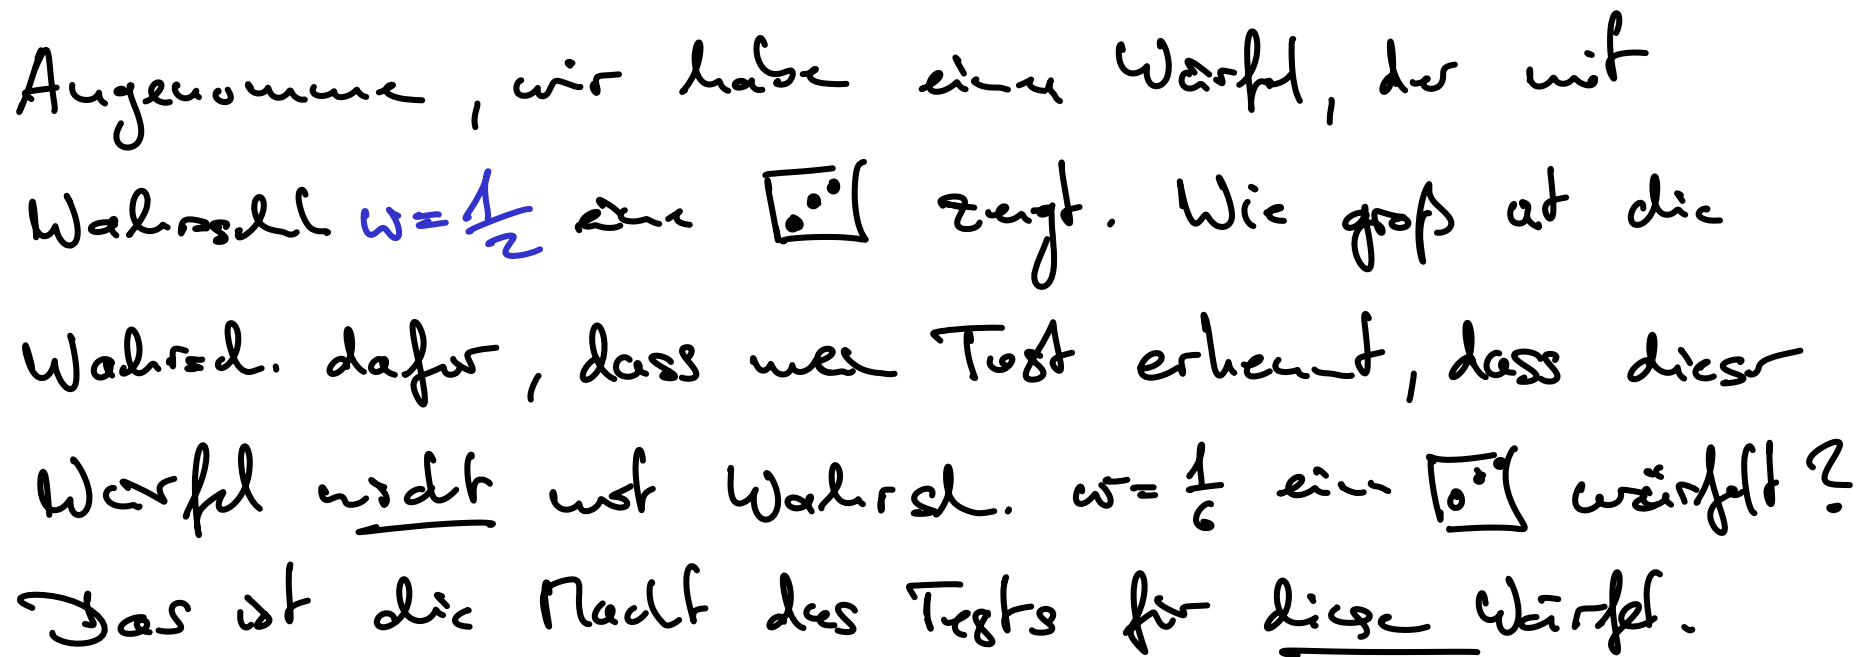 Angenommen, wir haben einen Würfel, der mit
Wahrschl w = 1/2 eine ⚂ zeigt. Wie groß ist die
Wahrsch. dafür, dass mein Test erkennt, dass dieser
Würfel nicht mit Wahrsch. w = 1/6 ein ⚂ würfelt?
Das ist die Macht des Tests für diesen Würfel.